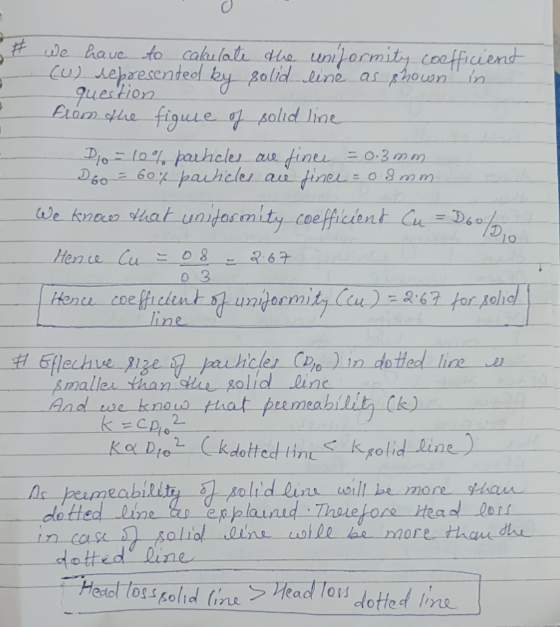 # We have to calculate the uniformity coefficient
(U) represented by solid line as shown in
question
From the figure of solid line
D10 = 10% particles are finer = 0.3 mm
D60 = 60% particles are finer = 0.8 mm
We know that uniformity coefficient Cu = D60/D10
Hence Cu = 0.8/0.3 = 2.67
Hence coefficient of uniformity (Cu) = 2.67 for solid
line
# Effective size of particles (D10) in dotted line is
smaller than the solid line
And we know that permeability (k)
k = CD10²
K∝D10² (K dotted line < K solid line)
As permeability of solid line will be more than
dotted line as explained. Therefore Head loss
in case of solid line will be more than the
dotted line
Head loss solid line > Head loss dotted line